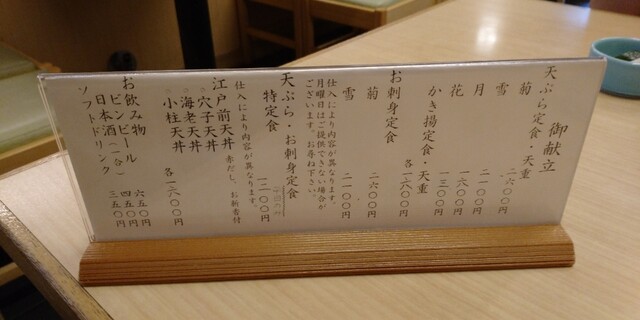 御献立
天ぷら定食・天重
菊 二六〇〇円
雪 二一〇〇円
月 一八〇〇円
花 一三〇〇円
かき揚定食・天重
各一八〇〇円
お刺身定食
菊 二六〇〇円
雪 二一〇〇円
仕入により内容が異なります。
月曜日はご提供できない場合が
ございます。お尋ね下さい。
天ぷら・お刺身定食
特定食 一二〇〇円
仕入により内容が異なります。
江戸前天丼 赤だし、お新香付
○穴子天丼
○海老天丼
○小柱天丼
各一六〇〇円
お飲み物
ビンビール 六五〇円
日本酒(一合) 四五〇円
ソフトドリンク 三五〇円